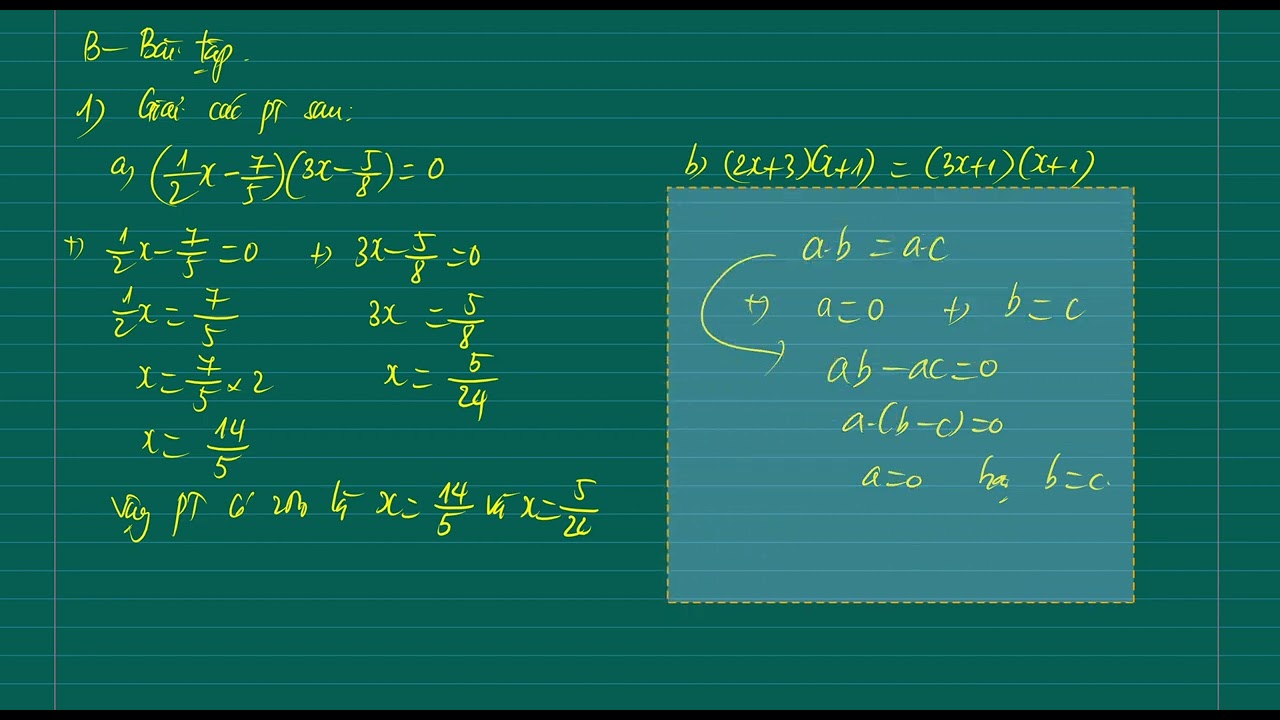 B- Bài tập.
1) Giải các pt sau:
a) (1/2x - 7/5)(3x - 5/8) = 0
+) 1/2x - 7/5 = 0 +) 3x - 5/8 = 0
1/2x = 7/5 3x = 5/8
x = 7/5 × 2 x = 5/24
x = 14/5
vậy PT có là x = 14/5 và x = 5/24
b) (2x+3)(x+1) = (3x+1)(x+1)
a.b = a.c
+) a = 0 +) b = c
ab - ac = 0
a.(b-c) = 0
a=0 hoặc b=c.